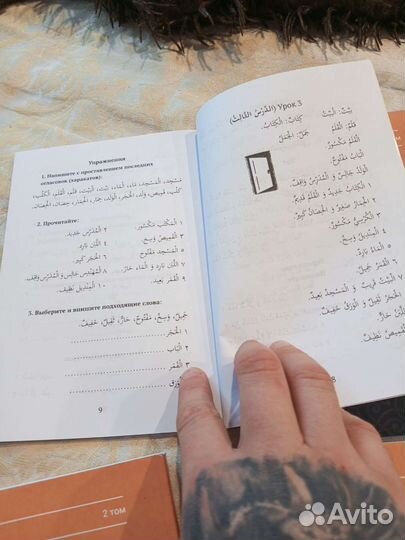 Упражнения
1. Напишите с проставлением последних
огласовок (харакатов):
مَسْجِد، الْمَسْجِد، مَاء، الْمَاء، بَيْت، الْبَيْت، قَلَم، الْقَلَم، الْكَلْب،
كَلْب، قَمِيص، الْحَجَر، الْوَلَد، حِمَار، الْحِمَار، حِصَان، الْحِصَان.
2. Прочитайте:
١ الْمَكْتَبُ مَكْسُورٌ. ٢ الْمُدَرِّسُ جَدِيدٌ.
٣ الْقَمِيصُ وَسِخٌ. ٤ اللَّبَنُ بَارِدٌ.
٥ الْمَسْجِدُ مَفْتُوحٌ. ٦ الْحَجَرُ كَبِيرٌ.
٧ اللَّبَنُ بَارِدٌ وَ الْمَاءُ حَارٌّ. ٨ الْمُهَنْدِسُ جَالِسٌ وَ الْمُدَرِّسُ وَاقِفٌ.
٩ الْقَمَرُ بَعِيدٌ. ١٠ الْمِنْدِيلُ نَظِيفٌ.
3. Выберите и впишите подходящие слова:
جَمِيلٌ، وَسِخٌ، مَفْتُوحٌ، حَارٌّ، ثَقِيلٌ، خَفِيفٌ.
١ الْحَجَرُ
٢ الْبَابُ
٣ الْقَمَرُ
9
Урок 3 (الدَّرْسُ الثَّالِثُ)
بَيْتٌ: الْبَيْتُ كِتَابٌ: الْكِتَابُ.
قَلَمٌ: الْقَلَمُ جَمَلٌ: الْجَمَلُ
الْقَلَمُ مَكْسُورٌ.
الْبَابُ مَفْتُوحٌ.
الْوَلَدُ جَالِسٌ وَ الْمُدَرِّسُ وَاقِفٌ.
١ الْكِتَابُ جَدِيدٌ وَ الْقَلَمُ قَدِيمٌ.
٢ الْحِمَارُ صَغِيرٌ وَ الْحِصَانُ كَبِيرٌ.
٣ الْكُرْسِيُّ مَكْسُورٌ.
٤ الْمِنْدِيلُ وَسِخٌ.
٥ الْمَاءُ بَارِدٌ.
٦ الْقَمَرُ جَمِيلٌ.
٧ الْبَيْتُ قَرِيبٌ وَ الْمَسْجِدُ بَعِيدٌ.
الْحَجَرُ ثَقِيلٌ وَ الْوَرَقُ خَفِيفٌ.
اللَّبَنُ حَارٌّ.
الْقَمِيصُ نَظِيفٌ.
8
2 том
Avito